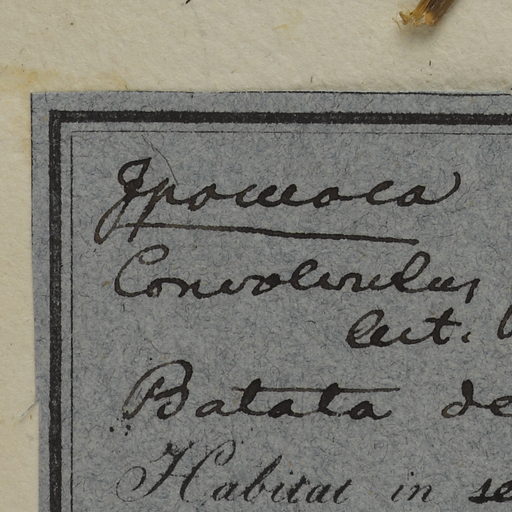 Ipomoea
Convolvulus
Batata de
Habitat in se